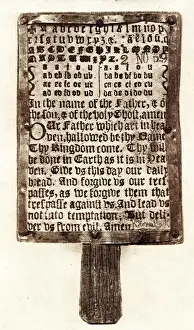 a b c d e f g h i k l m n o p
q r s t u v w x y z &. a e i o u
A B C D E F G H I K L M N O P Q
No 59
a e i o u a e i o u
ab eb ib ob ub ba be bi bo bu
ac ec ic oc uc ca ce ci co cu
ad ed id od ud da de di do du
In the name of the Father, & of
the Son, & of the holy Ghost. amen
Our Father which art in hea
ven, hallowed be thy Name
Thy Kingdom come. Thy will
be done in Earth as it is in Hea
ven. Give us this day our daily
bread. And forgive us our tres
passes, as we forgive them that
trespasse against us. And lead us
not into temptation, But deli
ver us from evil. Amen.